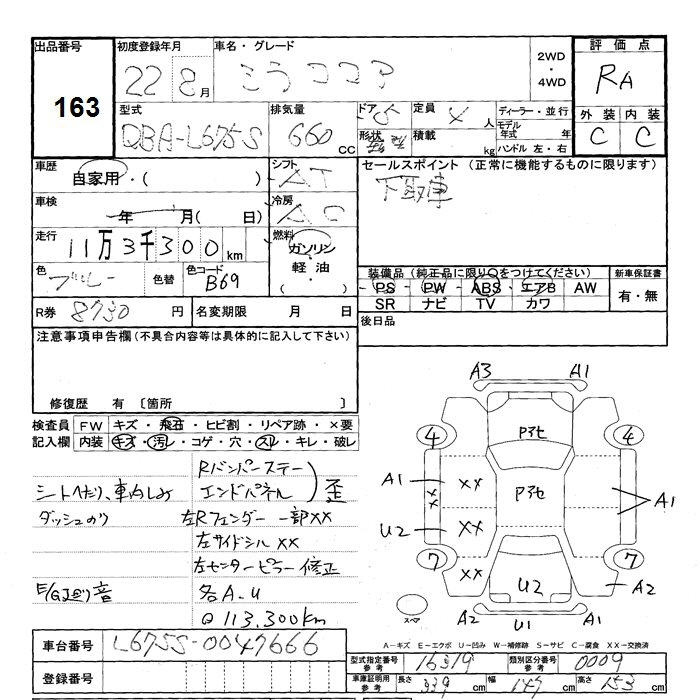 出品番号
163
初度登録年月
22 8月
車名・グレード
ミラココア
2WD・4WD
評価点
RA
外装 内装
C C
型式
QBA-L675S
排気量
660 CC
ドア
5
形状
定員
4人
積載
kg
ディーラー・並行
モデル年式 年
ハンドル 左・右
車歴
自家用・( )
シフト
AT
セールスポイント (正常に機能するものに限ります)
下取車
車検
年 月( 日)
冷房
AC
走行
11万3千300km
燃料
ガソリン・軽油・( )
色
ブルー
色替
色コード
B69
装備品 (純正品に限り○をつけてください)
PS PW ABS エアB AW
SR ナビ TV カワ
新車保証書
有・無
R券 8730円
名変期限 月 日
後日品
注意事項申告欄(不具合内容等は具体的に記入して下さい)
修復歴 有 〔箇所 〕
検査員記入欄
FW キズ・飛石・ヒビ割・リペア跡・×要
内装 キズ・汚レ・コゲ・穴・スレ・キレ・破レ
Rバンパーステー
エンドパネル
歪
シートヘたり、車内しみ
ダッシュのり
左Rフェンダー一部XX
左サイドシルXX
左センターピラー修正
E/G廻り音
各A.U
◎113,300km
A3 A1
4 P3セ 4
A1 XX XX P3セ A1
U2 XX
7 XX U2 7
A2
スペア
A2 U1 A1
A−キズ E−エクボ U−凹み W−補修跡 S−サビ C−腐食 XX−交換済
車台番号
L675S-0047666
登録番号
型式指定番号 参考
16319
類別区分番号 参考
0009
車庫証明用 参考
長さ 339cm 幅 147cm 高さ 153cm